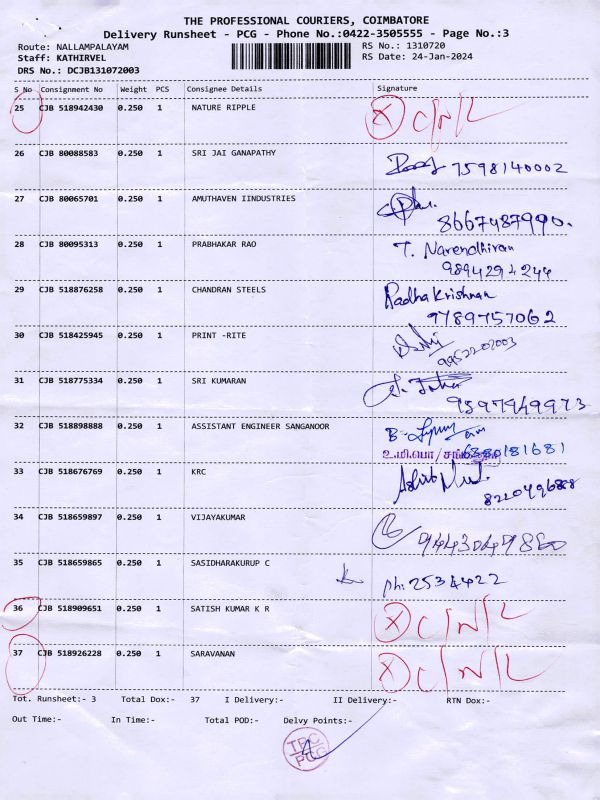 THE PROFESSIONAL COURIERS, COIMBATORE
Delivery Runsheet - PCG - Phone No.:0422-3505555 - Page No.:3
Route: NALLAMPALAYAM RS No.: 1310720
Staff: KATHIRVEL RS Date: 24-Jan-2024
DRS No.: DCJB131072003
S No Consignment No Weight PCS Consignee Details Signature
25 CJB 518942430 0.250 1 NATURE RIPPLE X C/N/L
26 CJB 80088583 0.250 1 SRI JAI GANAPATHY 7598140002
27 CJB 80065701 0.250 1 AMUTHAVEN IINDUSTRIES
8667487990.
28 CJB 80095313 0.250 1 PRABHAKAR RAO T. Narendhiran
9894294244
29 CJB 518876258 0.250 1 CHANDRAN STEELS Radha Krishnan
9789757062
30 CJB 518425945 0.250 1 PRINT -RITE
9952202003
31 CJB 518775334 0.250 1 SRI KUMARAN
9597949973
32 CJB 518898888 0.250 1 ASSISTANT ENGINEER SANGANOOR
உ.மி.பொ/
33 CJB 518676769 0.250 1 KRC
34 CJB 518659897 0.250 1 VIJAYAKUMAR
35 CJB 518659865 0.250 1 SASIDHARAKURUP C ph: 2534422
36 CJB 518909651 0.250 1 SATISH KUMAR K R X C/N/L
37 CJB 518926228 0.250 1 SARAVANAN X C/N/L
Tot. Runsheet:- 3 Total Dox:- 37 I Delivery:- II Delivery:- RTN Dox:-
Out Time:- In Time:- Total POD:- Delvy Points:-
TPC
PCG